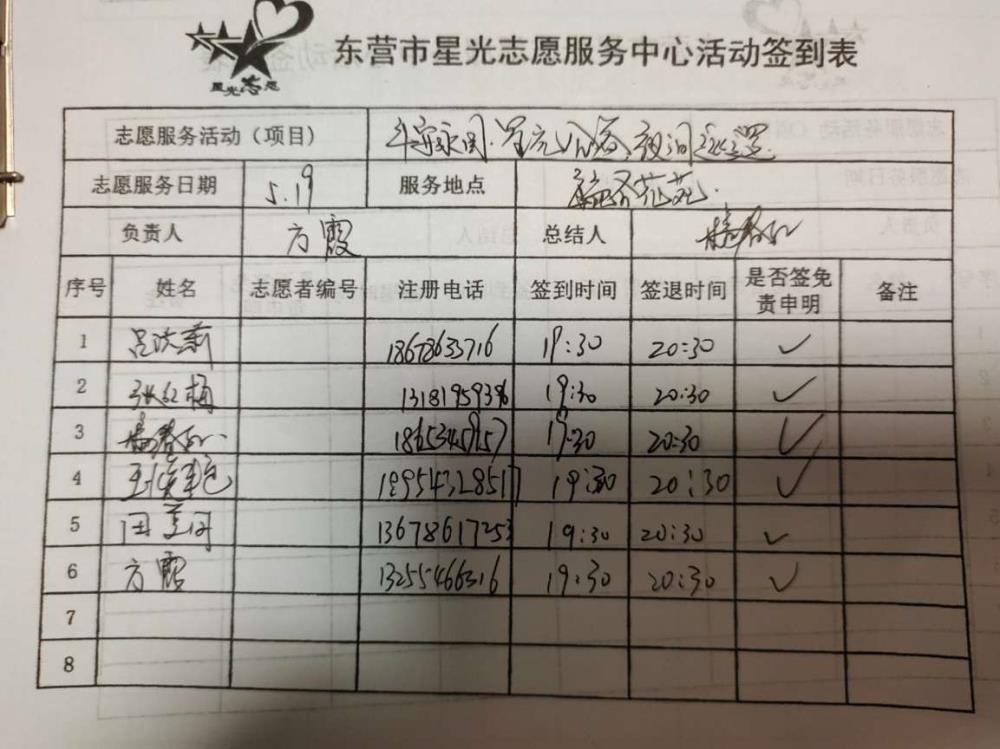 星光志愿
东营市星光志愿服务中心活动签到表
志愿服务活动（项目） 平安家园·星光 夜间巡逻
志愿服务日期 5.19 服务地点 花苑
负责人 方霞 总结人
序号 姓名 志愿者编号 注册电话 签到时间 签退时间 是否签免责申明 备注
1 18678633716 19:30 20:30 ✓
2 张红梅 1318195939 19:30 20:30 ✓
3 19:30 20:30 ✓
4 18954328517 19:30 20:30 ✓
5 田兰 13678617253 19:30 20:30 ✓
6 方霞 13255466316 19:30 20:30 ✓
7
8